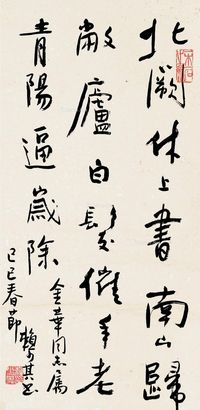 北闕休上書南山歸
敝廬白髮催年老
青陽逼歲除
金華同志屬
己巳春節
賴少其書